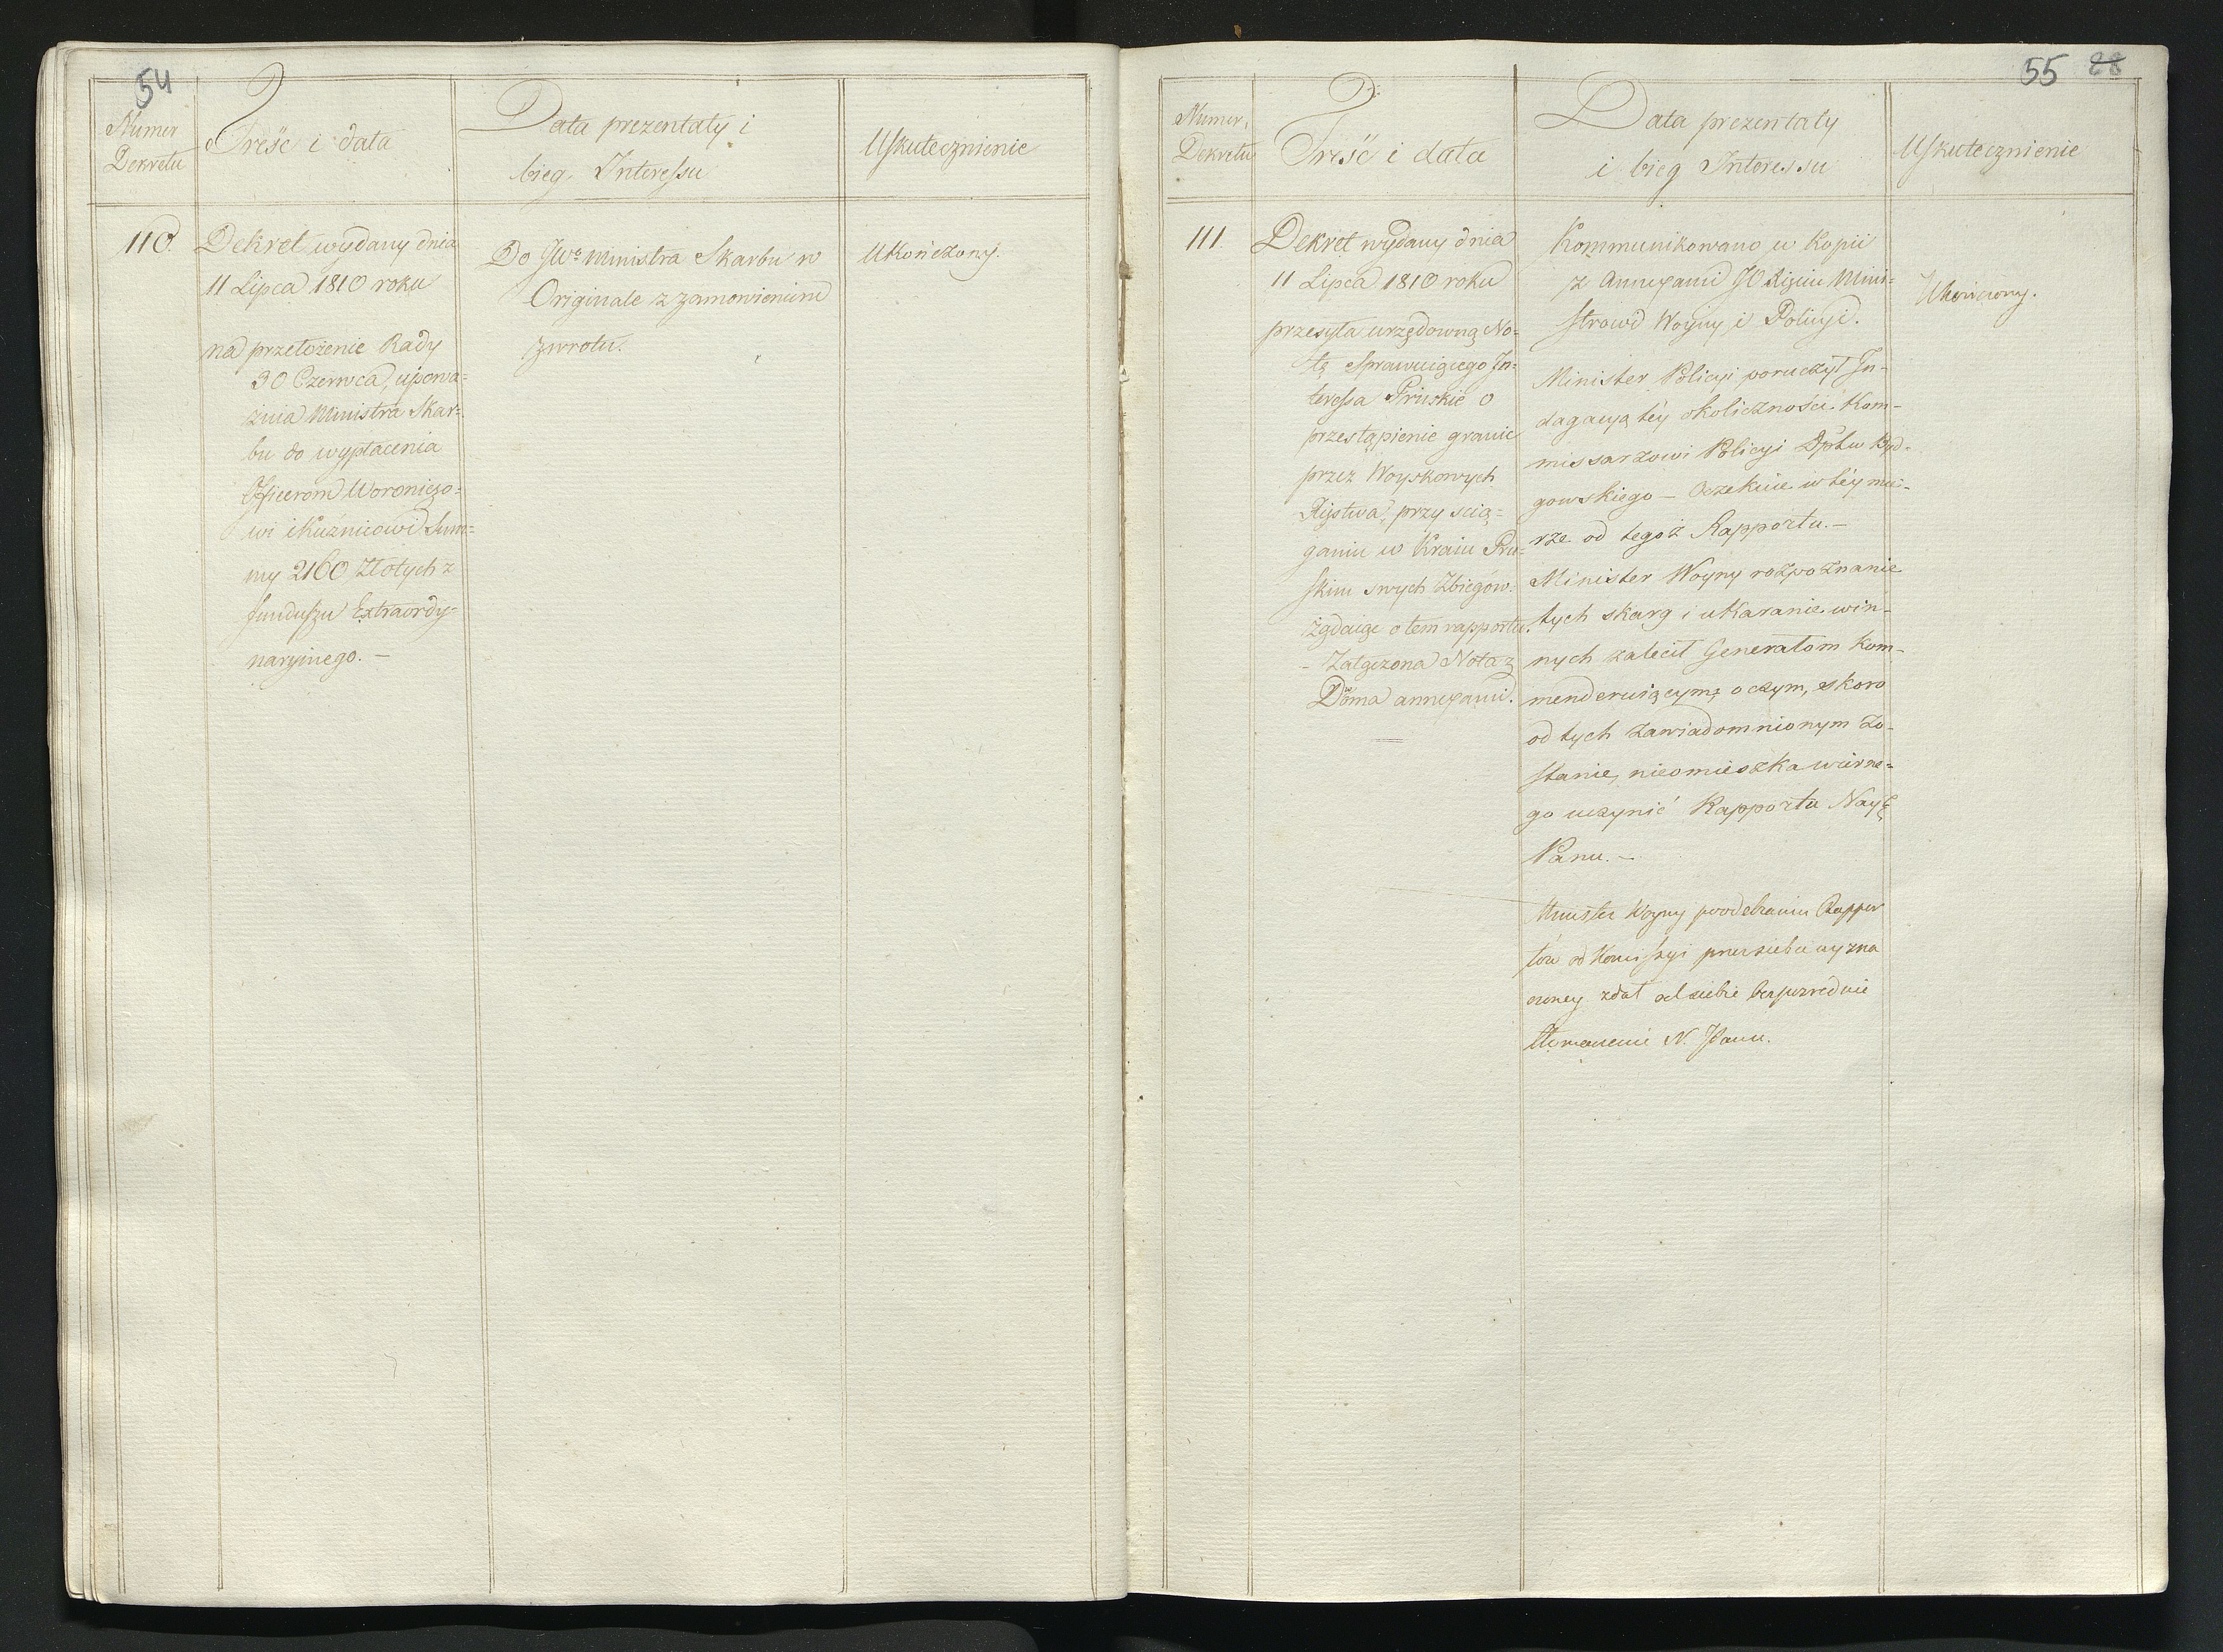 54
Numer
Dekretu
Treść i data
Data prezentaty i
bieg Interessu
Uskutecznienie
110.
Dekret wydany dnia
11 Lipca 1810 roku
na przełożenie Rady
30 Czerwca, upowa=
żnia Ministra Skar=
bu do wypłacenia
Officerom Woronieco=
wi i Kuźnicowi Sum=
my 2160 Złotych z
funduszu Extraordy=
naryinego. —
Do JWo Ministra Skarbu w
Originale z zamowieniem
zwrotu.
Ukończony.
55 28
Numer
Dekretu
Treść i data
Data prezentaty
i bieg Interessu
Uskutecznienie
111.
Dekret wydany dnia
11 Lipca 1810 roku
przesyła urzędowną No=
tę Sprawuiącego In=
teressa Pruskie o
przestąpienie granic
przez Woyskowych
Xięstwa, przy ścią=
ganiu w Kraiu Pru=
skim swych Zbiegów.
żądaiąc o tem rapportu.
- Załączona Nota z
Dwoma annexami.
Kommunikowano w Kopii
z Annexami JO Xięciu Mini=
strowi Woyny i Policyi.
Minister Policyi poruczył In-
dagacyą téy okoliczności Kom-
missarzowi Policyi Dptu Byd-
gowskiego — Oczekuie w téy mie-
rze od tegoż Rapportu. —
Minister Woyny rozpoznanie
tych skarg i ukaranie win-
nych zalecił Generałom Kom-
menderuiącym, o czym, skoro
od tych zawiadomnionym zo-
stanie, nieomieszka wiérne-
go uczynić Rapportu Nay
Panu. —
Minister Woyny po odebraniu Rappor
tów od Komissyi przez siebie wyzna
czoney zdał od siebie bezpośrednie
tłomaczenie N. Panu.
Ukończony.